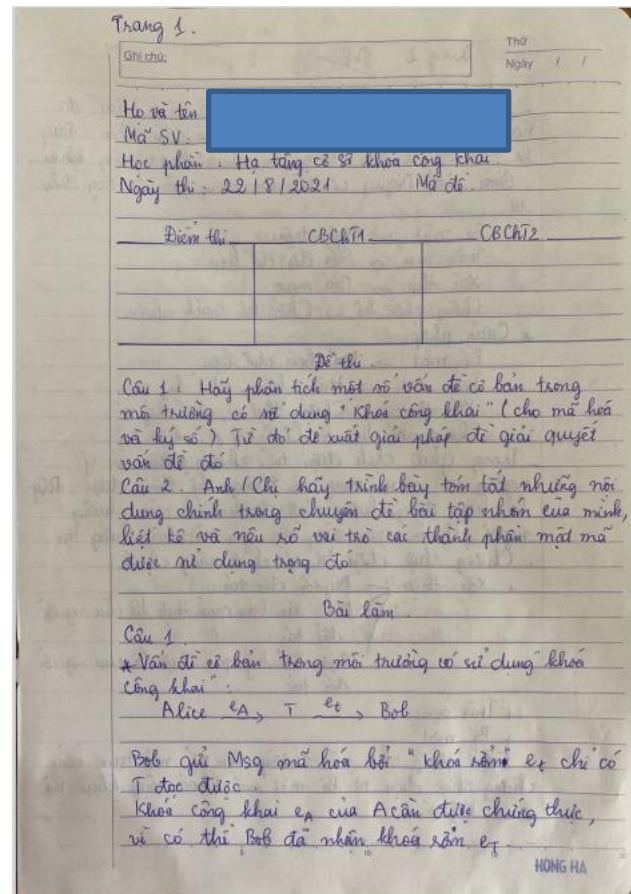 Trang 1.
Ghi chú:
Thứ
Ngày / /
Họ và tên
Mã SV:
Học phần : Hạ tầng cơ sở khoá công khai
Ngày thi : 22 / 8 / 2021 Mã đề.
Điểm thi CBChT1 CBChT2
Đề thi
Câu 1 : Hãy phân tích một số vấn đề cơ bản trong
môi trường có sử dụng "Khoá công khai" ( cho mã hoá
và ký số ) Từ đó đề xuất giải pháp để giải quyết
vấn đề đó
Câu 2. Anh / Chị hãy trình bày tóm tắt những nội
dung chính trong chuyên đề bài tập nhóm của mình,
liệt kê và nêu rõ vai trò các thành phần mật mã
được sử dụng trong đó
Bài làm
Câu 1.
* Vấn đề cơ bản trong môi trường có sử dụng "khoá
công khai" :
Alice eA> T et> Bob
Bob gửi Msg mã hóa bởi "khoá rởm" et chỉ có
T đọc được
Khoá công khai eA của A cần được chứng thực,
vì có thể Bob đã nhận khoá rởm eT
HONG HA